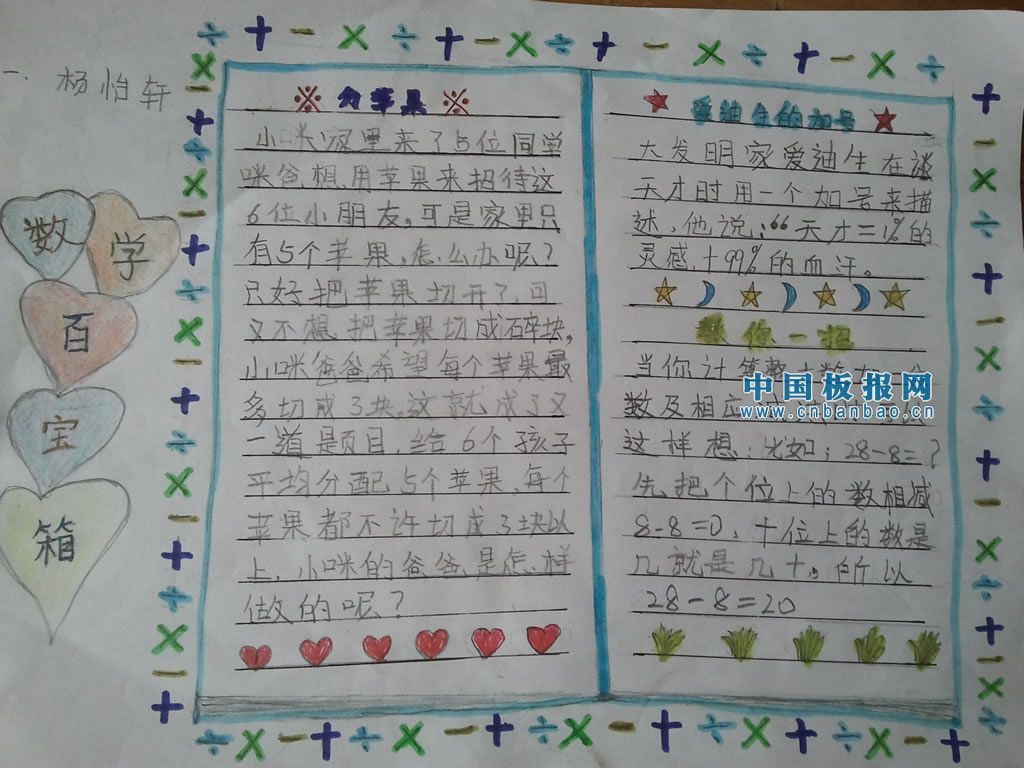 一.杨怡轩
数
学
百
宝
箱
※分苹果※
小咪家里来了5位同学
咪爸想用苹果来招待这
6位小朋友。可是家里只
有5个苹果,怎么办呢?
只好把苹果切开了,可
又不想把苹果切成碎块,
小咪爸爸希望每个苹果最
多切成3块。这就成了又
一道是页目,给6个孩子
平均分配5个苹果,每个
苹果都不许切成3块以
上,小咪的爸爸是怎样
做的呢?
爱迪生的加号
大发明家爱迪生在谈
天才时用一个加号来描
述,他说:“天才=1%的
灵感+99%的血汗。
教你一招
当你计算
中国板报网
数及相应
www.cnbanbao.cn
这样想:比如:28-8=?
先把个位上的数相减
8-8=0,十位上的数是
几就是几十。所以
28-8=20